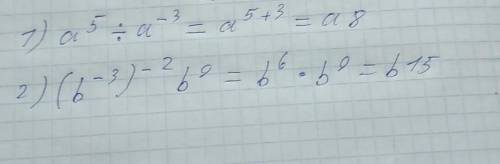 1) a⁵ ÷ a⁻³ = a⁵⁺³ = a8
2) (b⁻³)⁻² b⁹ = b⁶ · b⁹ = b15